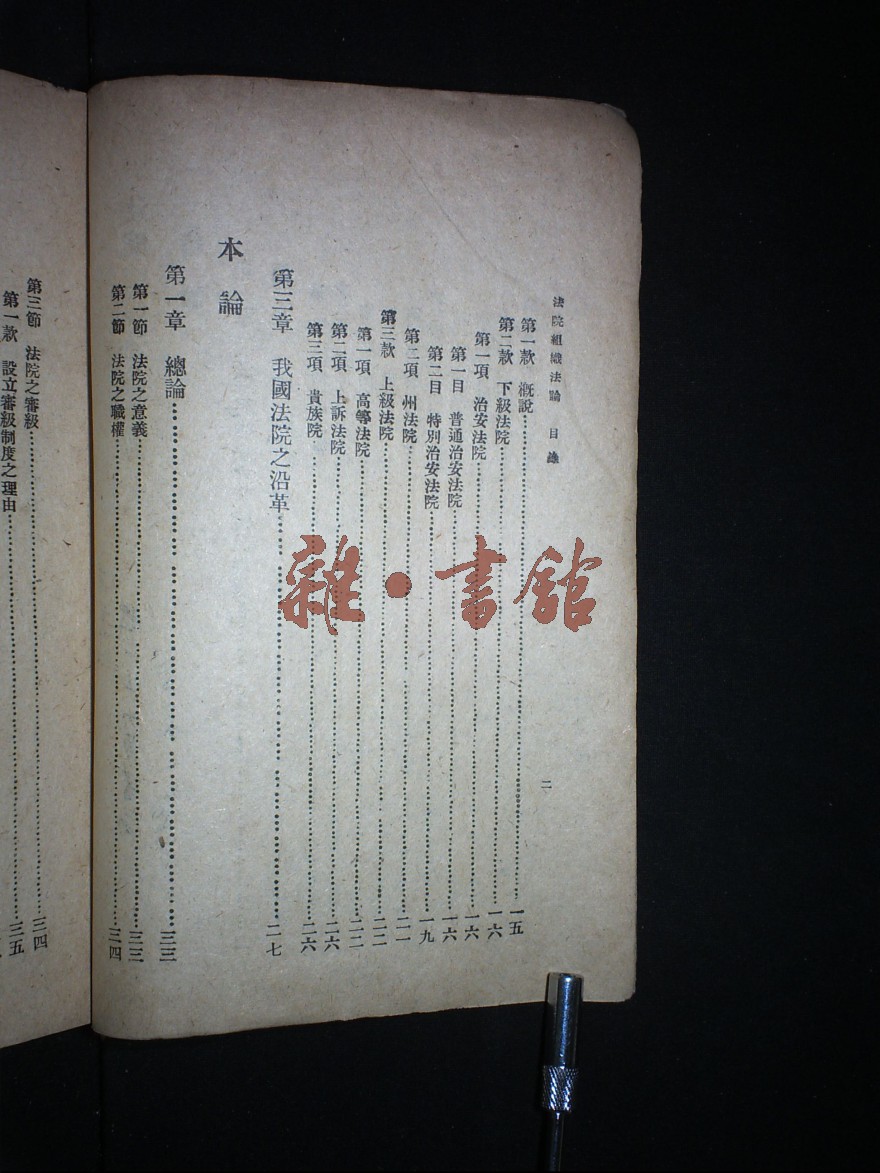 法院組織法論　目錄
二
第一款　概說……一五
第二款　下級法院……一六
第一項　治安法院……一六
第一目　普通治安法院……一六
第二目　特別治安法院……一九
第二項　州法院……二一
第三款　上級法院……二二
第一項　高等法院……二二
第二項　上訴法院……二六
第三項　貴族院……二六
第三章　我國法院之沿革……二七
本論
第一章　總論……三三
第一節　法院之意義……三三
第二節　法院之職權……三四
第三節　法院之審級……三四
第一款　設立審級制度之理由……三五
雜·書館